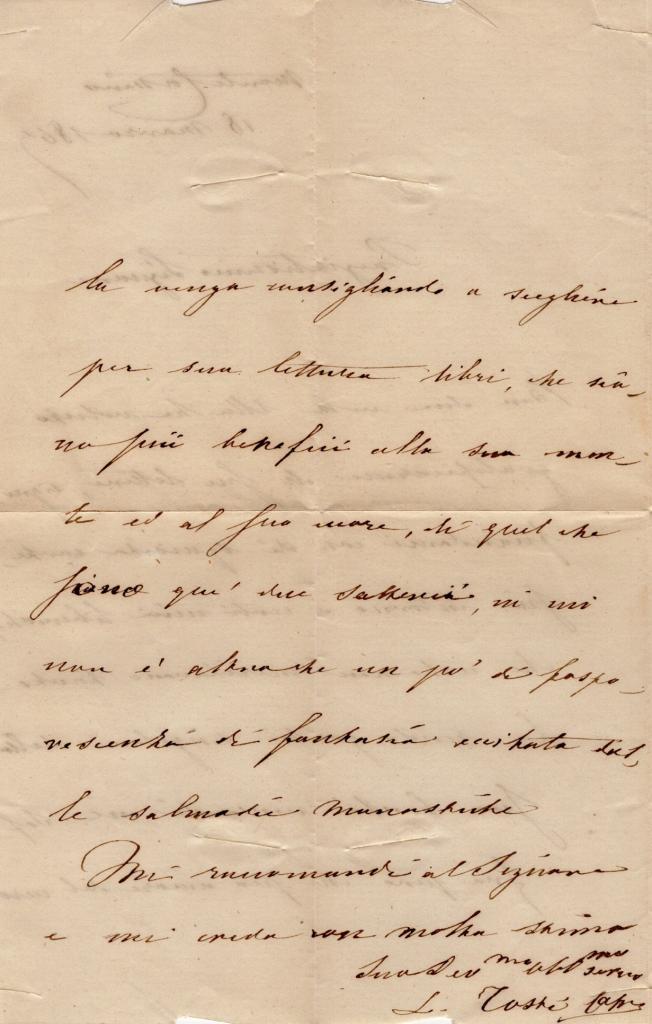 la venga consigliando a scegliere
per sua lettura libri, che sia-
no più benefici alla sua men-
te ed al suo cuore, di quel che
siano que' due salterii, in cui
non è altro che un po' di fosfo-
rescenza di fantasia eccitata dal-
le salmodie monastiche
Mi raccomandi al Signore
e mi creda con molta stima
Suo Dev mo obb mo servo
L. Tosti